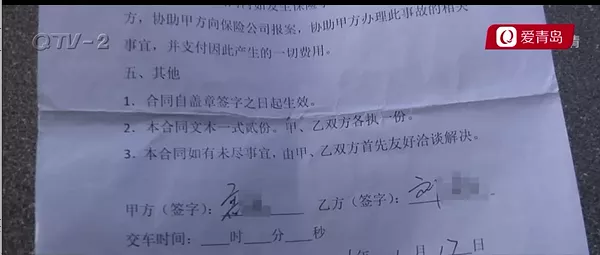 QTV-2
爱青岛
情
方，协助甲方向保险公司报案，协助甲方办理此事故的相关
事宜，并支付因此产生的一切费用。
五、其他
1. 合同自盖章签字之日起生效。
2. 本合同文本一式贰份。甲、乙双方各执一份。
3. 本合同如有未尽事宜，由甲、乙双方首先友好洽谈解决。
甲方（签字）： 乙方（签字）：
交车时间：___时___分___秒
月17日